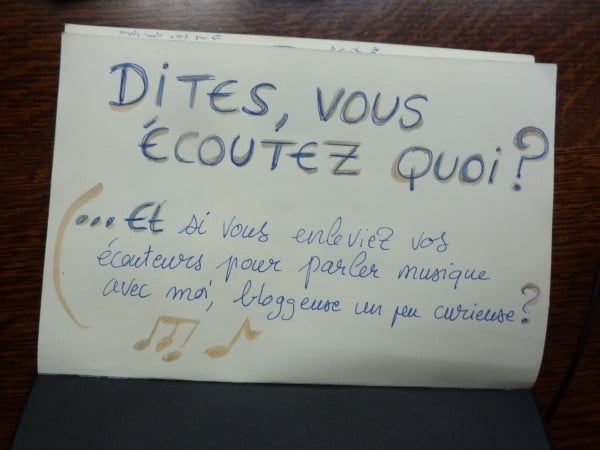 DiTES, VOUS
ÉCOUTEZ QUOi ?
(... Et si vous enleviez vos
écouteurs pour parler musique
avec moi, bloggeuse un peu curieuse ?